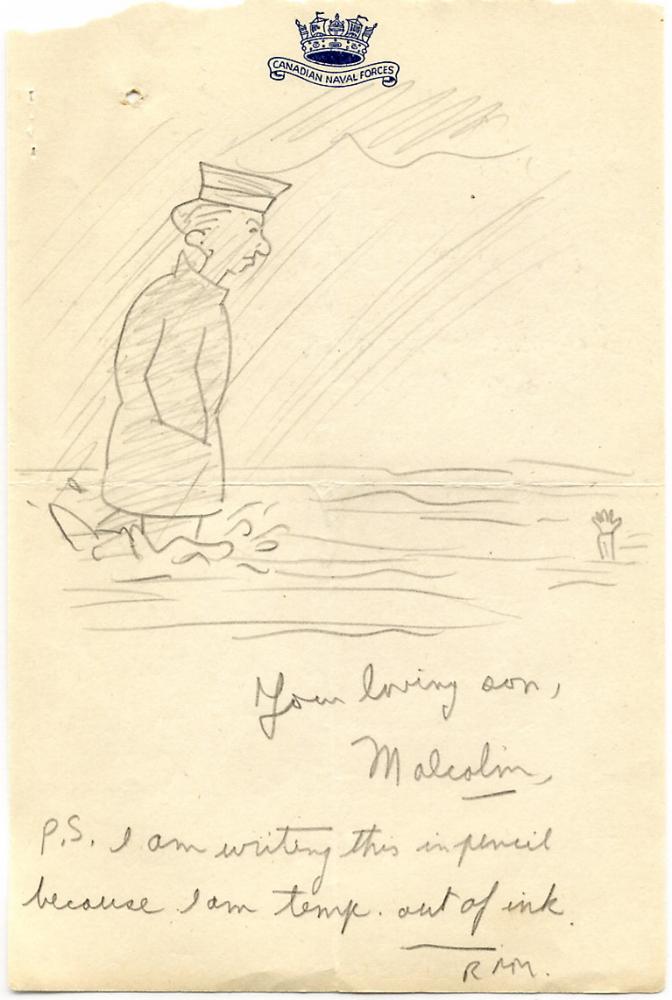 CANADIAN NAVAL FORCES
Your loving son,
Malcolm,
P.S. I am writing this in pencil
because I am temp. out of ink.
RMM.